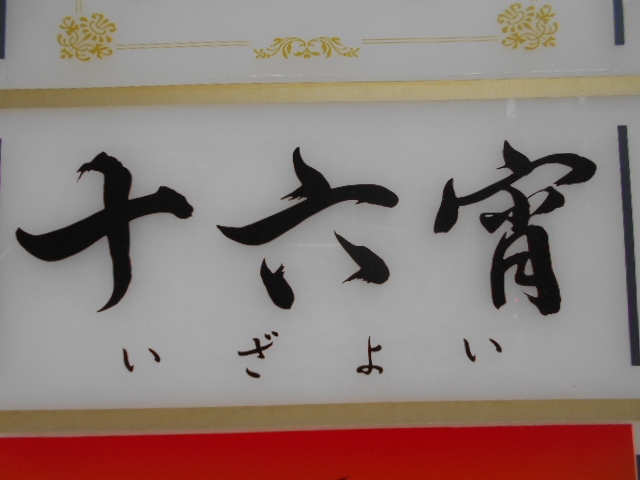 十六宵
いざよい